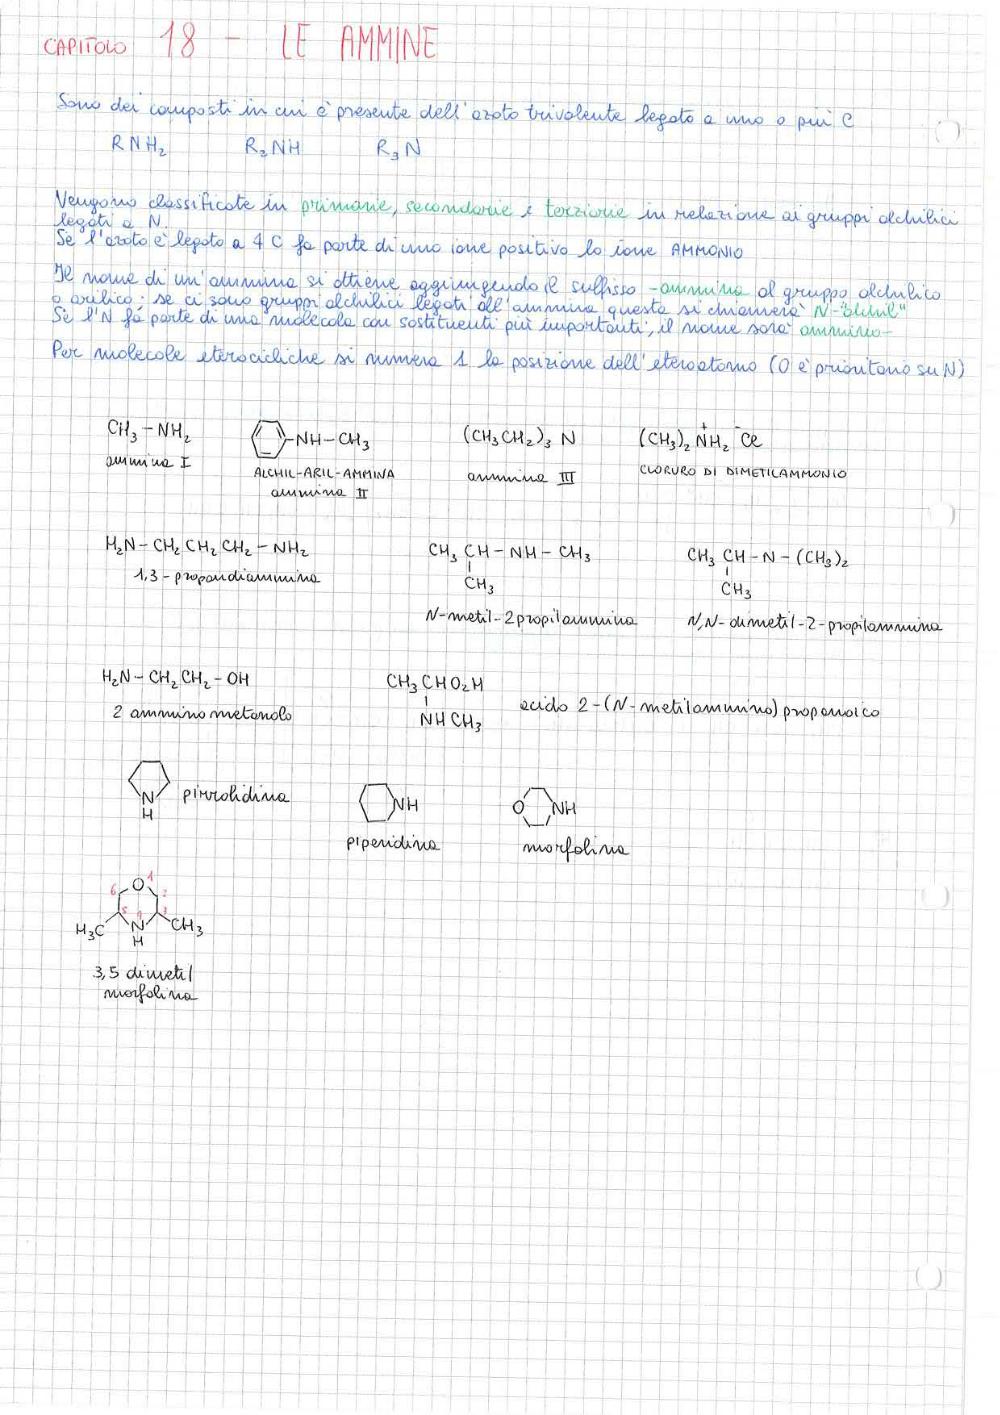 CAPITOLO 18 - LE AMMINE
Sono dei composti in cui è presente dell'azoto trivalente legato a uno o più C
RNH₂ R₂NH R₃N
Vengono classificate in primarie, secondarie e terziarie in relazione ai gruppi alchilici
legati a N.
Se l'azoto è legato a 4 C fa parte di uno ione positivo lo ione AMMONIO
Il nome di un'ammina si ottiene aggiungendo il suffisso -ammina al gruppo alchilico
o arilico; se ci sono gruppi alchilici legati all'ammina questa si chiamerà N-"alchil"
Se l'N fa parte di una molecola con sostituenti più importanti, il nome sarà ammino-
Per molecole eterocicliche si numera 1 la posizione dell'eteroatomo (O è prioritario su N)
CH₃-NH₂ -NH-CH₃ (CH₃CH₂)₃ N (CH₃)₂ N⁺H₂ ⁻Cl
ammina I ALCHIL-ARIL-AMMINA ammina III CLORURO DI DIMETILAMMONIO
ammina II
H₂N-CH₂CH₂CH₂-NH₂ CH₃CH-NH-CH₃ CH₃CH-N-(CH₃)₂
CH₃ CH₃
1,3-propandiammina N-metil-2propilammina N,N-dimetil-2-propilammina
H₂N-CH₂CH₂-OH CH₃CHO₂H
2 ammino metanolo NHCH₃ acido 2-(N-metilammino)propanoico
N H pirrolidina NH O NH
piperidina morfolina
6 O 1 2
5 4 3
H₃C N CH₃
H
3,5 dimetil
morfolina